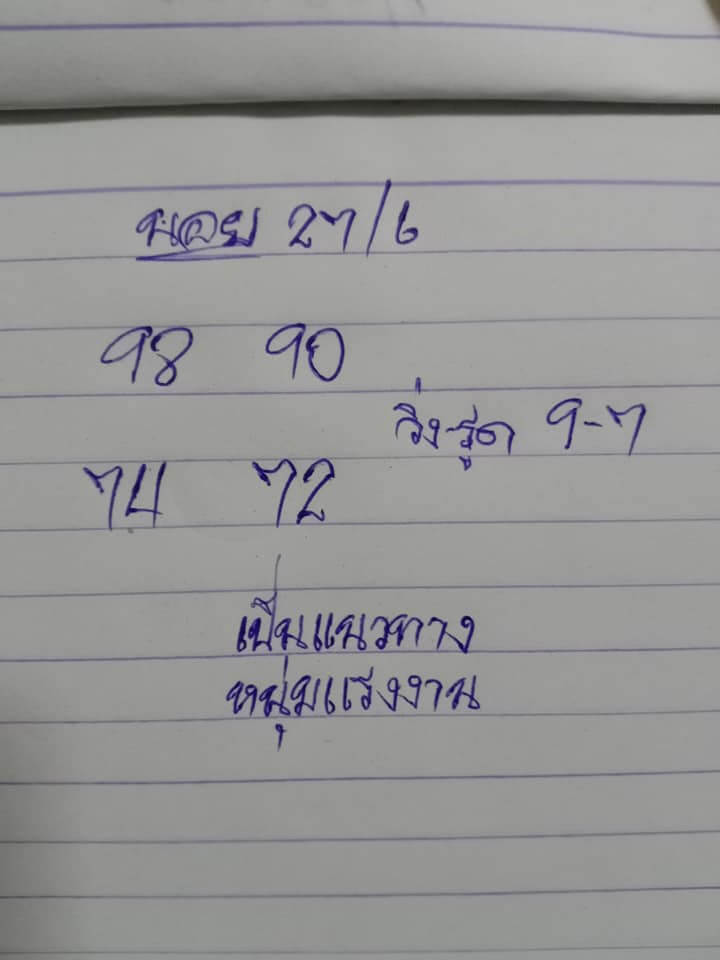 นอย 27/6
98 90
วิ่ง-รูด 9-7
74 72
เป็นแนวทาง
หนุ่มแรงงาน